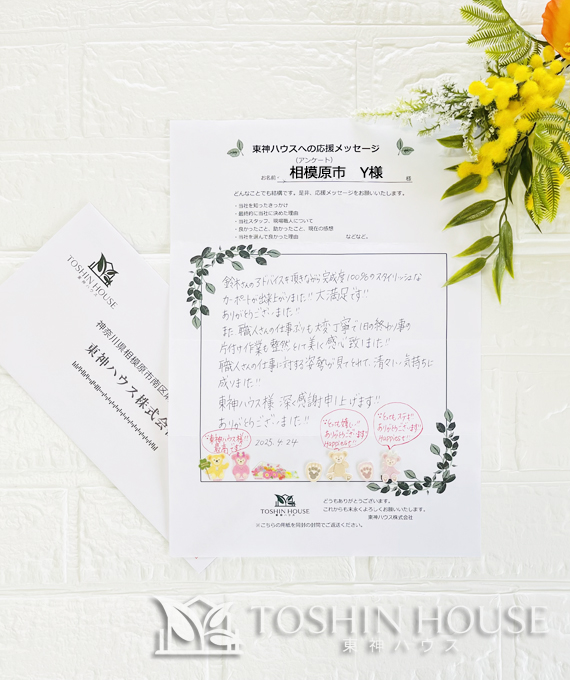 東神ハウスへの応援メッセージ
（アンケート）
お名前： 相模原市 Y様 様
どんなことでも結構です。是非、応援メッセージをお願いいたします。
・当社を知ったきっかけ
・最終的に当社に決めた理由
・当社スタッフ、現場職人について
・良かったこと、悪かったこと、現在の感想
・当社を選んで良かった理由 などなど。
鈴木さんのアドバイスを頂きながら完成度100%のスタイリッシュな
カーポートが出来上がりました!! 大満足です!!
ありがとうございました!!
また 職人さんの仕事ぶりも大変丁寧で1日の終わり事の
片付け作業も整然としていて
感心致しました!!
職人さんの仕事に対する姿勢が見てとれて、清々しい気持ちに
成りました!!
東神ハウス様 深く感謝申し上げます!!
ありがとうございました!!
2025.4.24
"東神ハウス様"
最高です
"とっても嬉しい"
ありがとうございます!
ありがとうございます!
TOSHIN HOUSE
東神ハウス
どうもありがとうございます。
これからも末永くよろしくお願いいたします。
東神ハウス株式会社
※こちらの用紙を同封の封筒でご返送ください。
TOSHIN HOUSE
東神ハウス
神奈川県相模原市南区
東神ハウス株式会社
TOSHIN HOUSE
東神ハウス